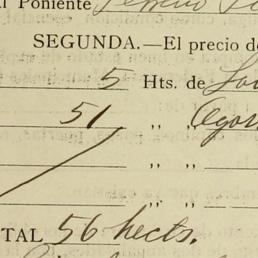 al Poniente
SEGUNDA.—El precio d
5 Hts. de
51 ,, ,,
,, ,,
,, ,,
TAL 56 hects.